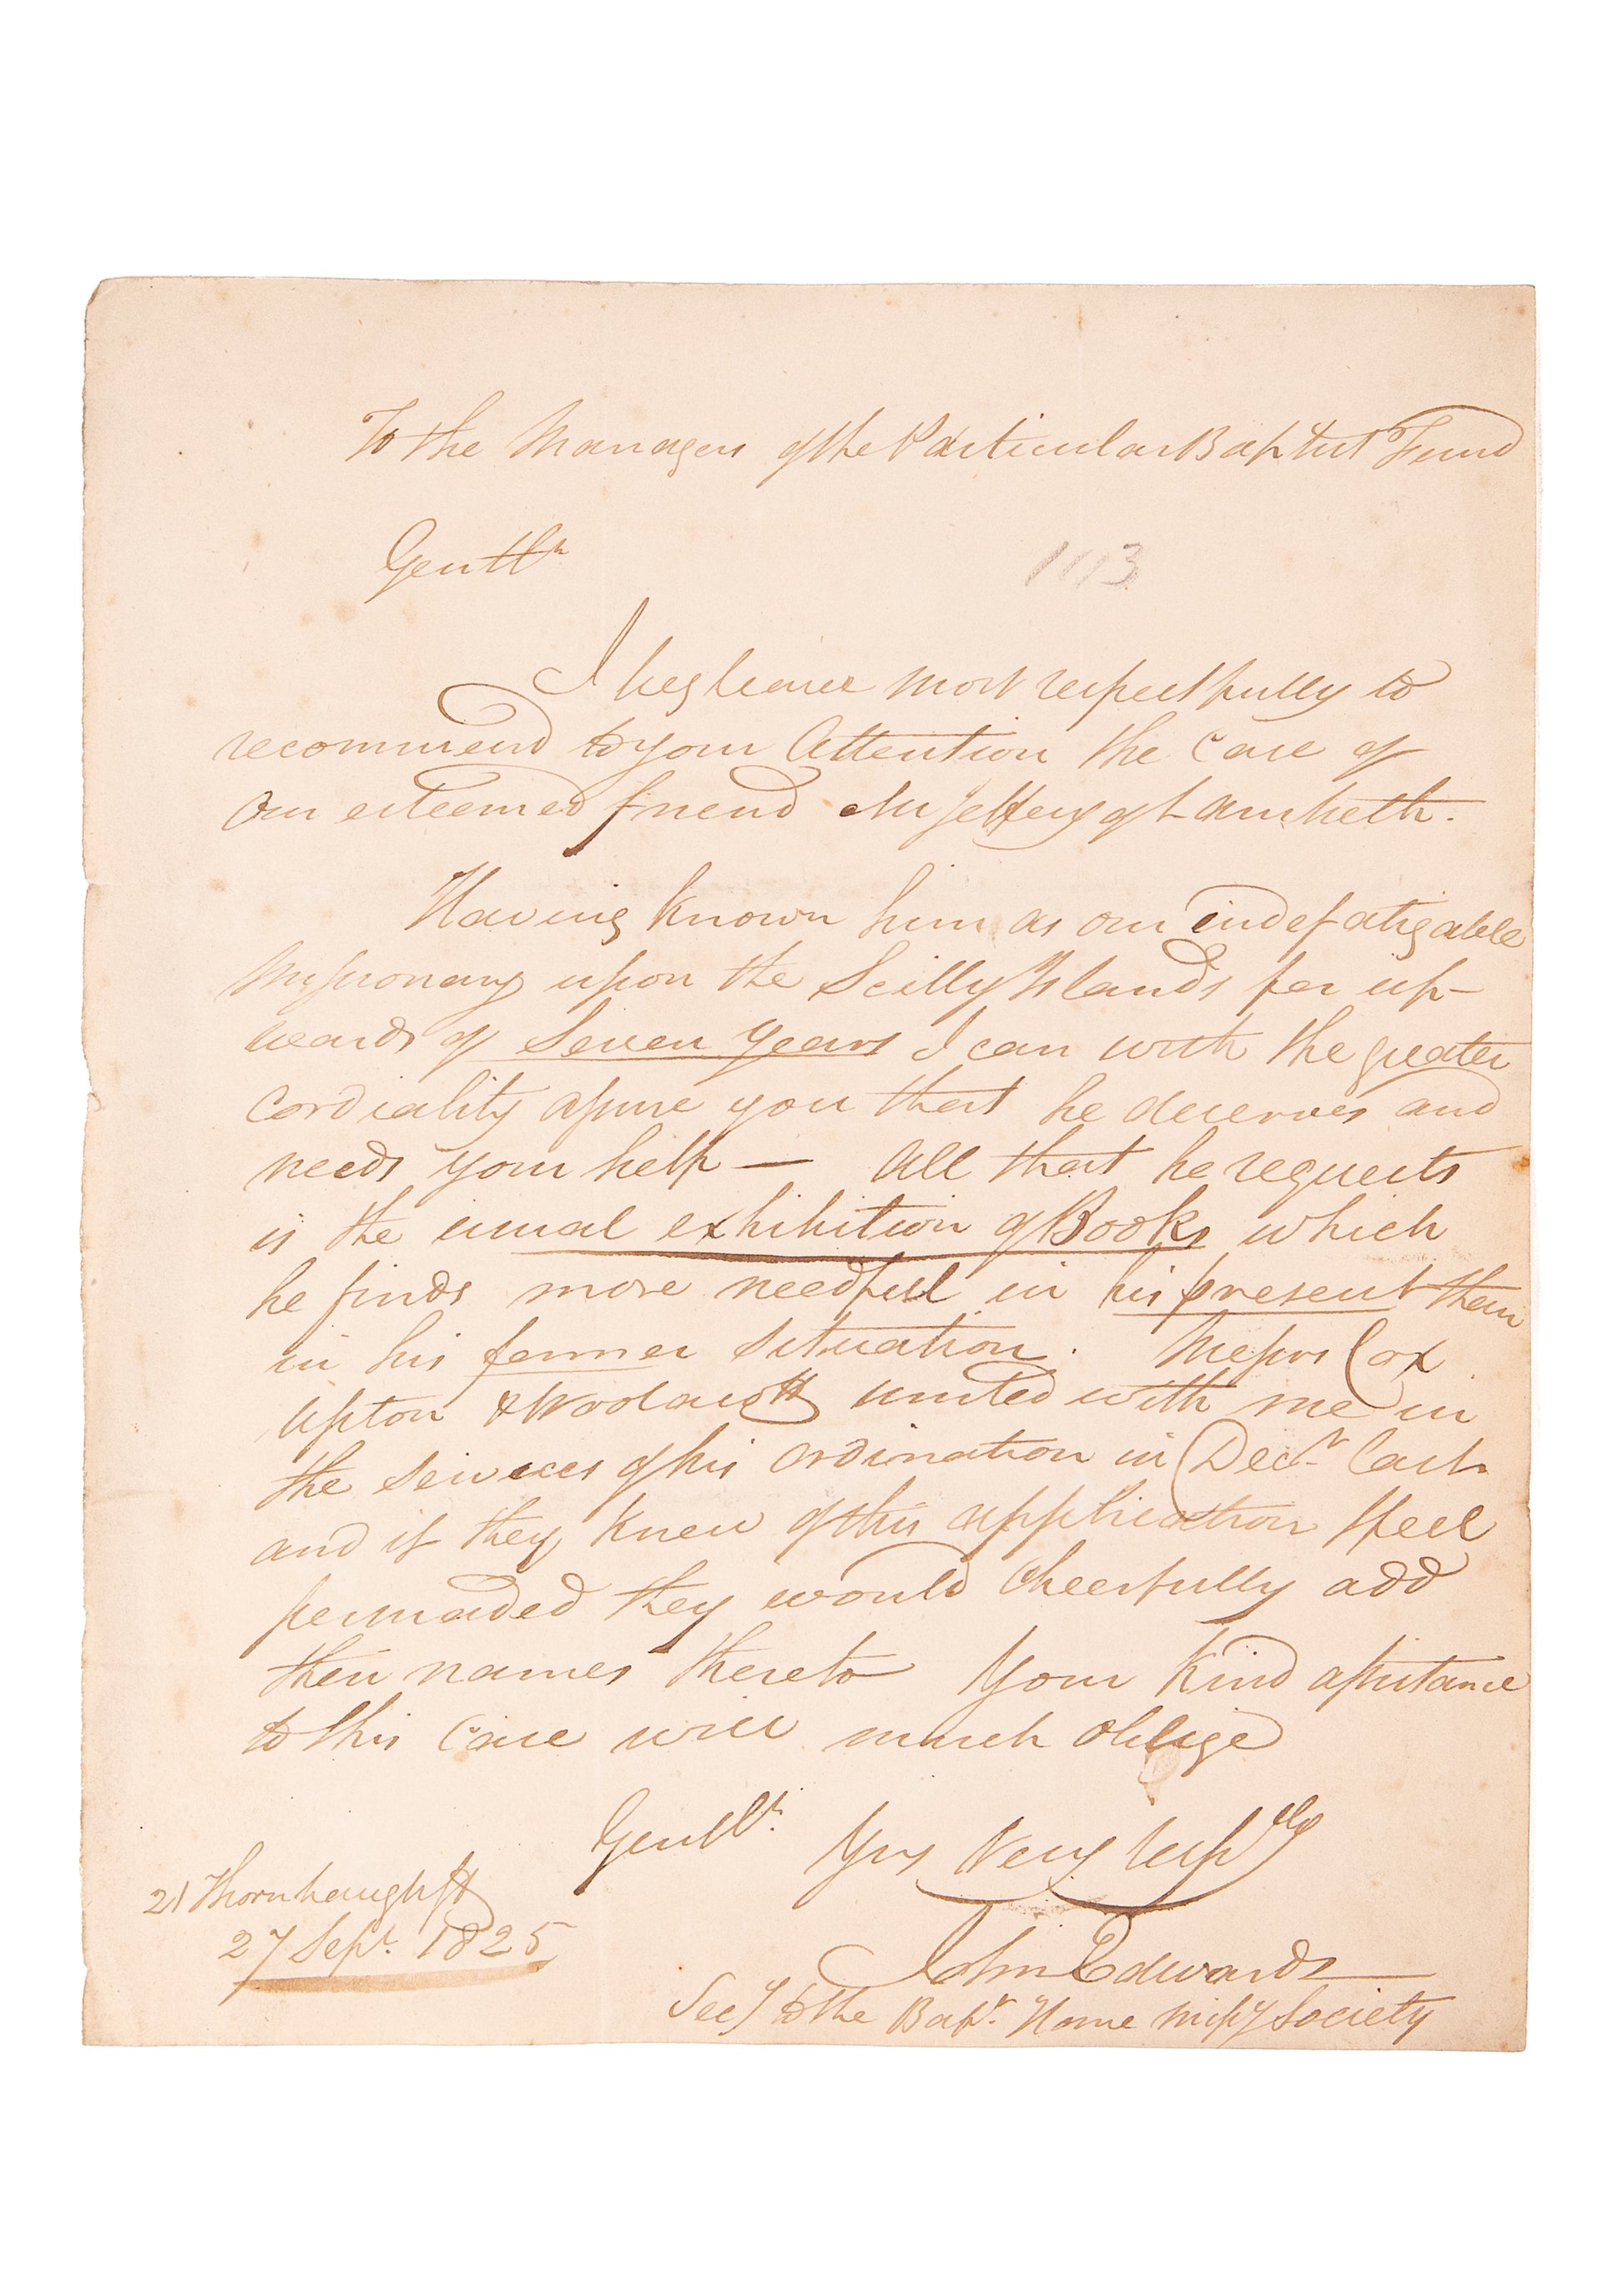 To the Managers of the Particular Baptist Fund
Gentln
1113
I beg leave most respectfully to
recommend to your Attention the Case of
our esteemed friend Mr Jeffery of Lambeth.
Having known him as our indefatigable
Missionary upon the Scilly Islands for up-
wards of Seven Years I can with the greater
Cordiality assure you that he deserves and
needs your help — All that he requests
is the usual exhibition of Books which
he finds more needful in his present than
in his former situation. Messrs Cox
Upton & Woolacott united with me in
the services of his Ordination in Decr last
and if they knew of this application I feel
persuaded they would Cheerfully add
their names thereto Your Kind assistance
to this Case will much oblige
Gentln.
Yrs Very resply
21 Thornhaugh St
27 Sept. 1825
John Edwards
Secy to the Bapt. Home Missy Society